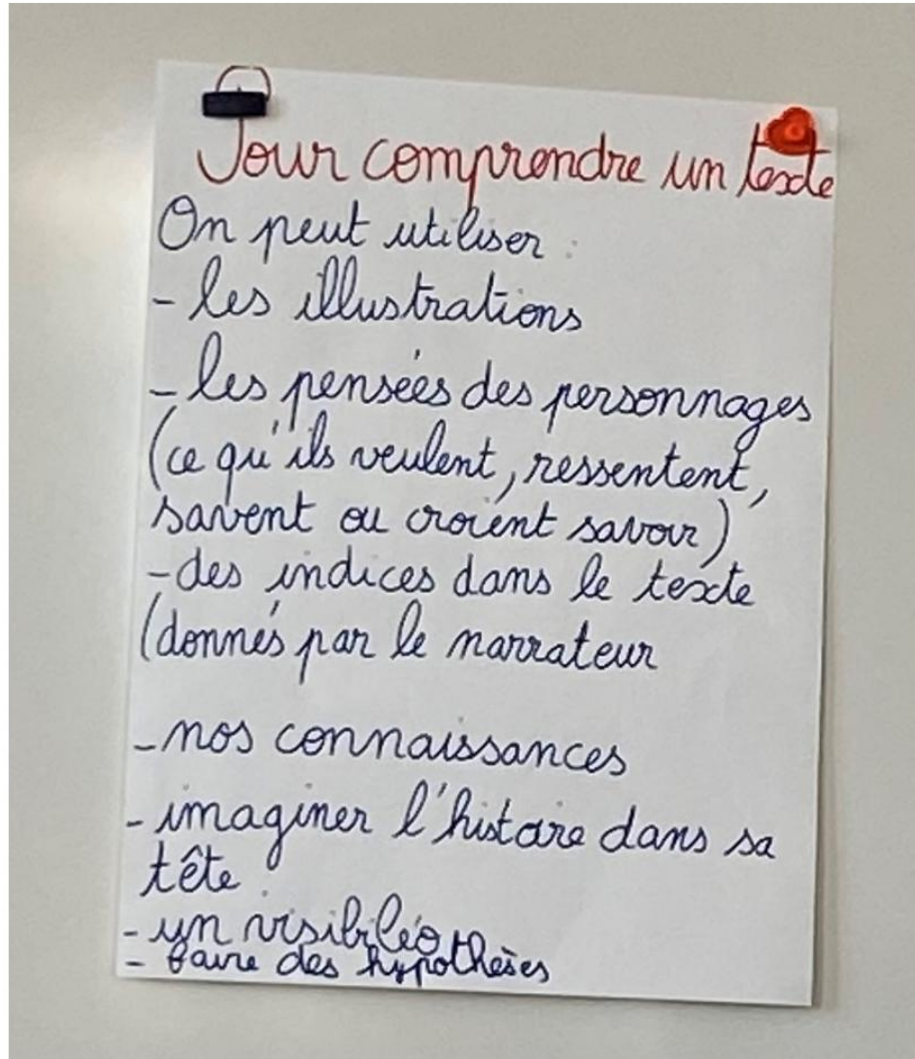 Pour comprendre un texte
On peut utiliser :
- les illustrations
- les pensées des personnages
(ce qu'ils veulent, ressentent,
savent ou croient savoir)
- des indices dans le texte
(donnés par le narrateur
- nos connaissances
- imaginer l'histoire dans sa
tête.
- un visibiléo
- faire des hypothèses